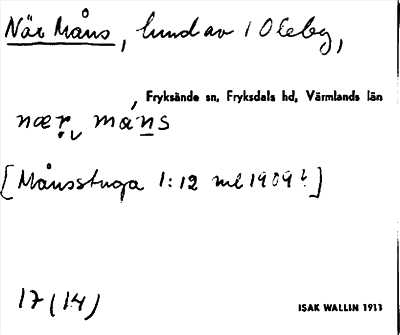 När Måns, lund av 1 Oleby,
Fryksände sn, Fryksdals hd, Värmlands län
nær, måns
[Månsstuga 1:12 ml 1909?]
17 (14)
ISAK WALLIN 1911